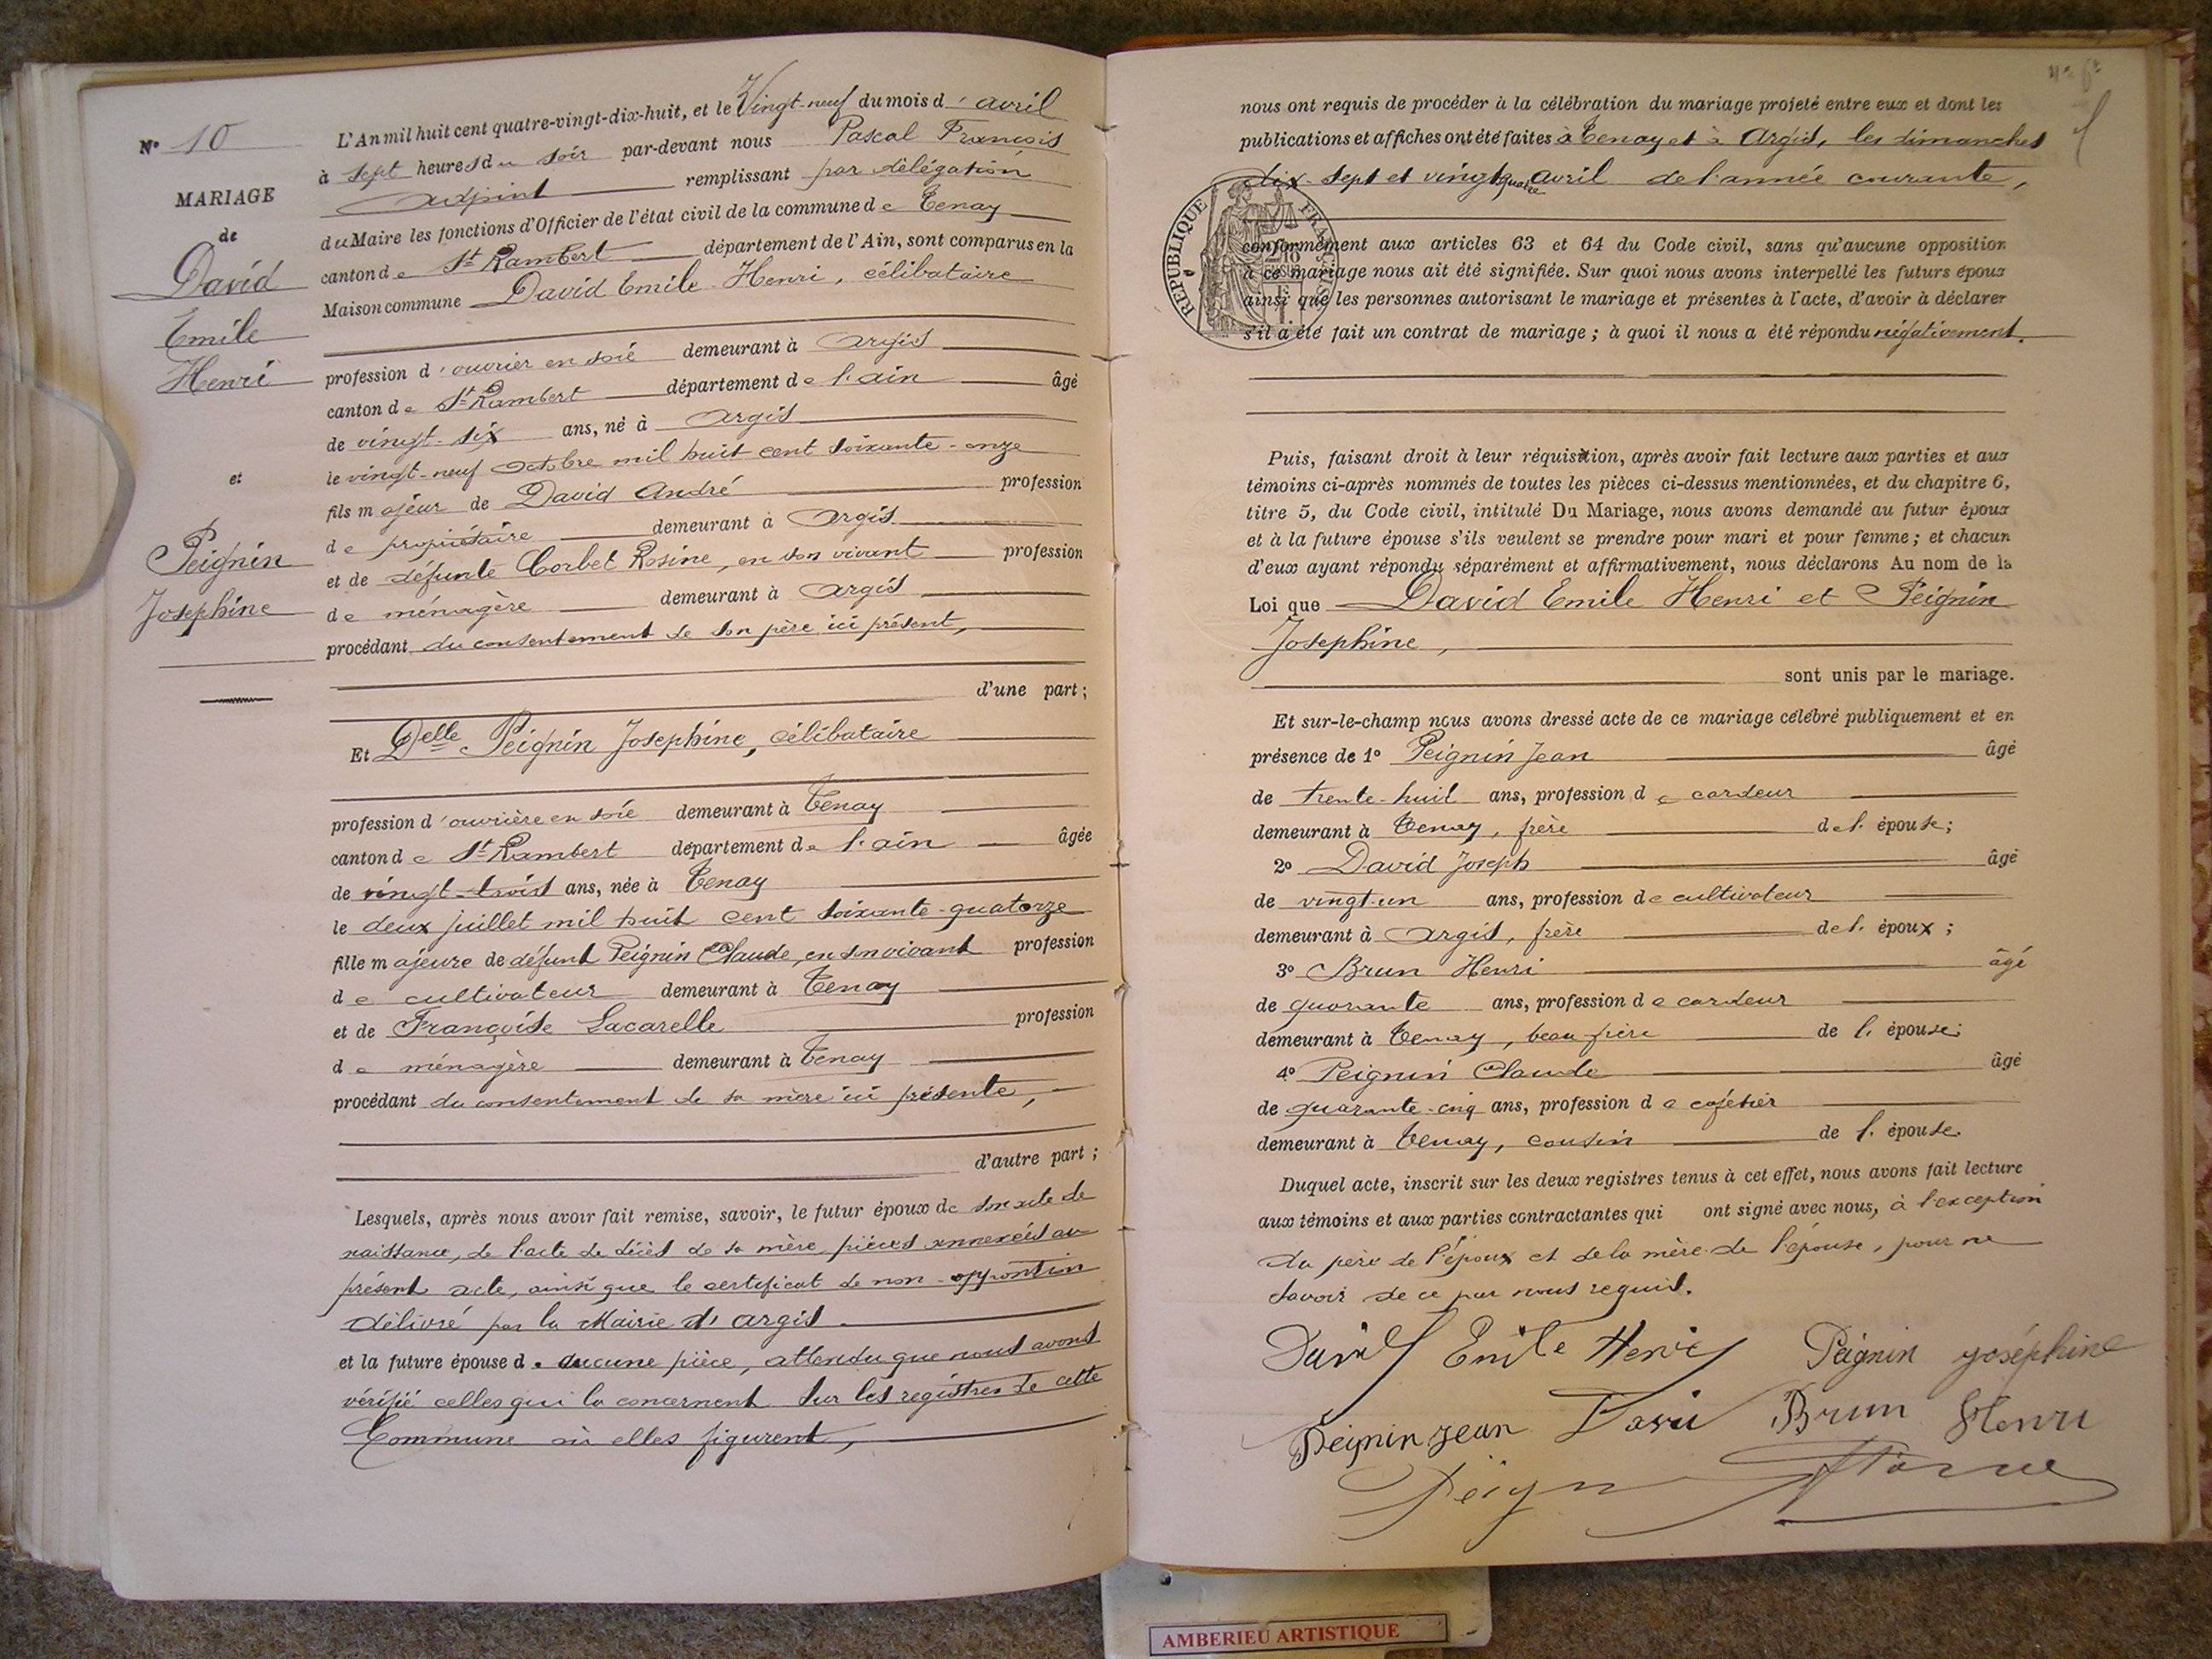 N° 10
MARIAGE
de
David
Emile
Henri
et
Peignin
Josephine
L'An mil huit cent quatre-vingt-dix-huit, et le Vingt-neuf du mois d'avril
à sept heures du soir par-devant nous Pascal Francois
Adjoint remplissant par délégation
du Maire les fonctions d'Officier de l'état civil de la commune de Tenay
canton de St Rambert département de l'Ain, sont comparus en la
Maison commune David Emile Henri, célibataire
profession d'ouvrier en soie demeurant à Argis
canton de St Rambert département de l'ain âgé
de vingt-six ans, né à Argis
le vingt-neuf Octobre mil huit cent soixante-onze
fils majeur de David André profession
de propriétaire demeurant à Argis
et de défunte Corbet Rosine, en son vivant profession
de ménagère demeurant à Argis
procédant du consentement de son père ici présent,
d'une part ;
Et Delle Peignin Josephine, célibataire
profession d'ouvrière en soie demeurant à Tenay
canton de St Rambert département de l'ain âgée
de vingt-trois ans, née à Tenay
le deux juillet mil huit cent soixante-quatorze
fille majeure de défunt Peignin Claude, en son vivant profession
de cultivateur demeurant à Tenay
et de Françoise Lacarelle profession
de ménagère demeurant à Tenay
procédant du consentement de sa mère ici présente,
d'autre part ;
Lesquels, après nous avoir fait remise, savoir, le futur époux de son acte de
naissance, de l'acte de décès de sa mère, pièces annexées au
présent acte, ainsi que le certificat de non-opposition
délivré par la Mairie d'Argis.
et la future épouse de aucune pièce, attendu que nous avons
vérifié celles qui la concernent sur les registres de cette
Commune où elles figurent,
nous ont requis de procéder à la célébration du mariage projeté entre eux et dont les
publications et affiches ont été faites à Tenay et à Argis, les dimanches
dix-sept et vingt quatre avril de l'année courante,
RÉPUBLIQUE FRANÇAISE
conformément aux articles 63 et 64 du Code civil, sans qu'aucune opposition
à ce mariage nous ait été signifiée. Sur quoi nous avons interpellé les futurs époux
ainsi que les personnes autorisant le mariage et présentes à l'acte, d'avoir à déclarer
s'il a été fait un contrat de mariage ; à quoi il nous a été répondu négativement.
Puis, faisant droit à leur réquisition, après avoir fait lecture aux parties et aux
témoins ci-après nommés de toutes les pièces ci-dessus mentionnées, et du chapitre 6,
titre 5, du Code civil, intitulé Du Mariage, nous avons demandé au futur époux
et à la future épouse s'ils veulent se prendre pour mari et pour femme ; et chacun
d'eux ayant répondu séparément et affirmativement, nous déclarons Au nom de la
Loi que David Emile Henri et Peignin
Josephine,
sont unis par le mariage.
Et sur-le-champ nous avons dressé acte de ce mariage célébré publiquement et en
présence de 1° Peignin Jean âgé
de trente-huit ans, profession de cardeur
demeurant à Tenay, frère de l'épouse ;
2° David Joseph âgé
de vingt-un ans, profession de cultivateur
demeurant à Argis, frère de l'époux ;
3° Brun Henri âgé
de quarante ans, profession de cardeur
demeurant à Tenay, beau-frère de l'épouse ;
4° Peignin Claude âgé
de quarante-cinq ans, profession de cafetier
demeurant à Tenay, cousin de l'épouse.
Duquel acte, inscrit sur les deux registres tenus à cet effet, nous avons fait lecture
aux témoins et aux parties contractantes qui ont signé avec nous, à l'exception
du père de l'époux et de la mère de l'épouse, pour ne
savoir de ce par nous requis.
David Emile Henri Peignin joséphine
Peignin Jean David Brun Henri
AMBERIEU ARTISTIQUE